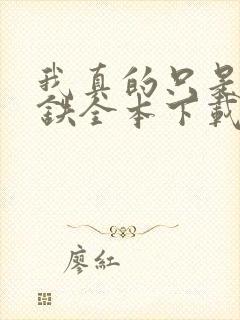 我真的只是
鐵全本下載
廖紅